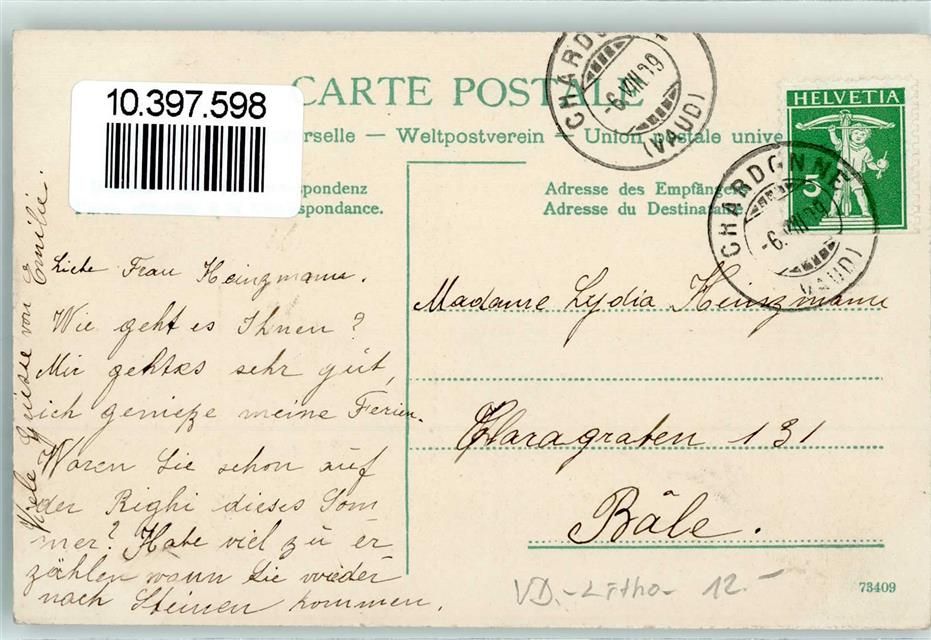 10.397.598
CARTE POSTALE
erselle — Weltpostverein — Union postale unive
spondenz
spondance.
Adresse des Empfänge
Adresse du Destinata
HELVETIA
5
CHARDO
-6.VIII.09
(VAUD)
CHARDONNE
-6.VIII.09
(VAUD)
Liebe Frau Heinzmann.
Wie geht es Ihnen?
Mir geht es sehr gut,
ich genieße meine Ferien.
Waren Sie schon auf
der Righi dieses Som
mer? Habe viel zu er
zählen wann Sie wieder
nach Steinen kommen.
Viele Grüsse von Emilie.
Madame Lydia Heinzmann
Claragraben 131
Bâle.
VD.-Litho- 12.-
73409